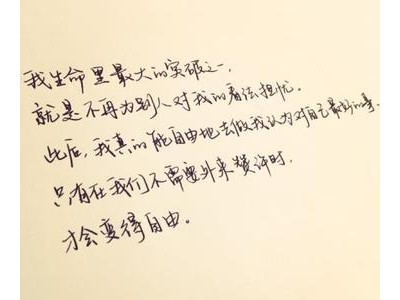 我生命里最大的突破之一，
就是不再为别人对我的看法担忧。
此后，我真的能自由地去做我认为对自己最好的事，
只有在我们不需要外来赞许时，
才会变得自由。